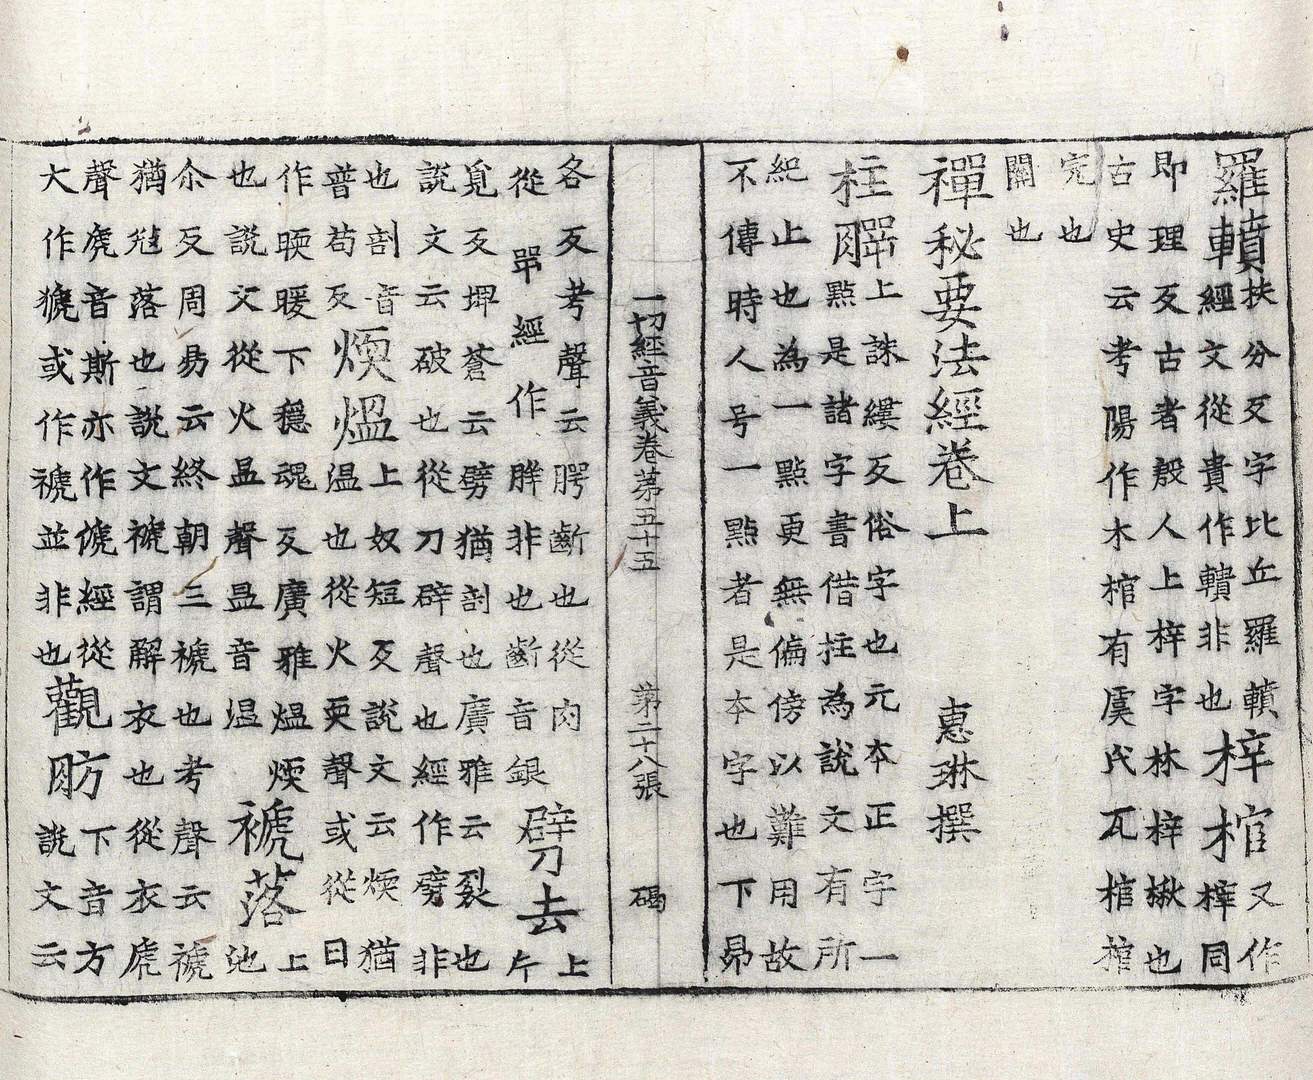 羅轒扶分反字比丘羅轒
經文從賁作轒非也
梓棺又作
榟同
即理反古者殷人上梓字林梓楸也
古史云考陽作木棺有虞氏瓦棺棺
完也
關也
禪秘要法經卷上 惠琳撰
柱腭上誅縷反俗字也元本正字一
點是諸字書借拄為說文有所
絕止也為一點更無偏傍以難用故
不傳時人号一點者是本字也下昂
一切經音義卷第五十五 第二十八張 碣
各反考聲云腭齗也從肉
從咢經作䏹非也齗音銀
劈去上
片
覓反埤蒼云劈猶剖也廣雅云裂也
說文云破也從刀辟聲也經作劈非
也剖音
普苟反
煗熅上奴短反說文云煗猶
温也從火耎聲或從日
作㬉暖下穩魂反廣雅熅煗
也說文從火昷聲昷音温
褫落上
池
尒反周易云終朝三褫也考聲云褫
猶落也說文褫謂解衣也從衣虒
聲虒音斯亦作傂經從
犬作猇或作禠並非也
觀肪下音方
說文云